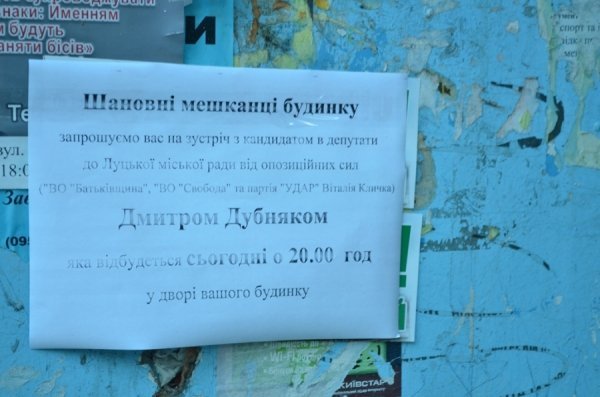 знаки: Именем
и будуть
и
Шановні мешканці будинку
запрошуємо вас на зустріч з кандидатом в депутати
до Луцької міської ради від опозиційних сил
("ВО "Батьківщина", "ВО "Свобода" та партія "УДАР" Віталія Кличка)
Дмитром Дубняком
яка відбудеться сьогодні о 20.00 год
у дворі вашого будинку
вул.
18:0
(095
спорт та і
Wi-Fi
КИЇВСТАР